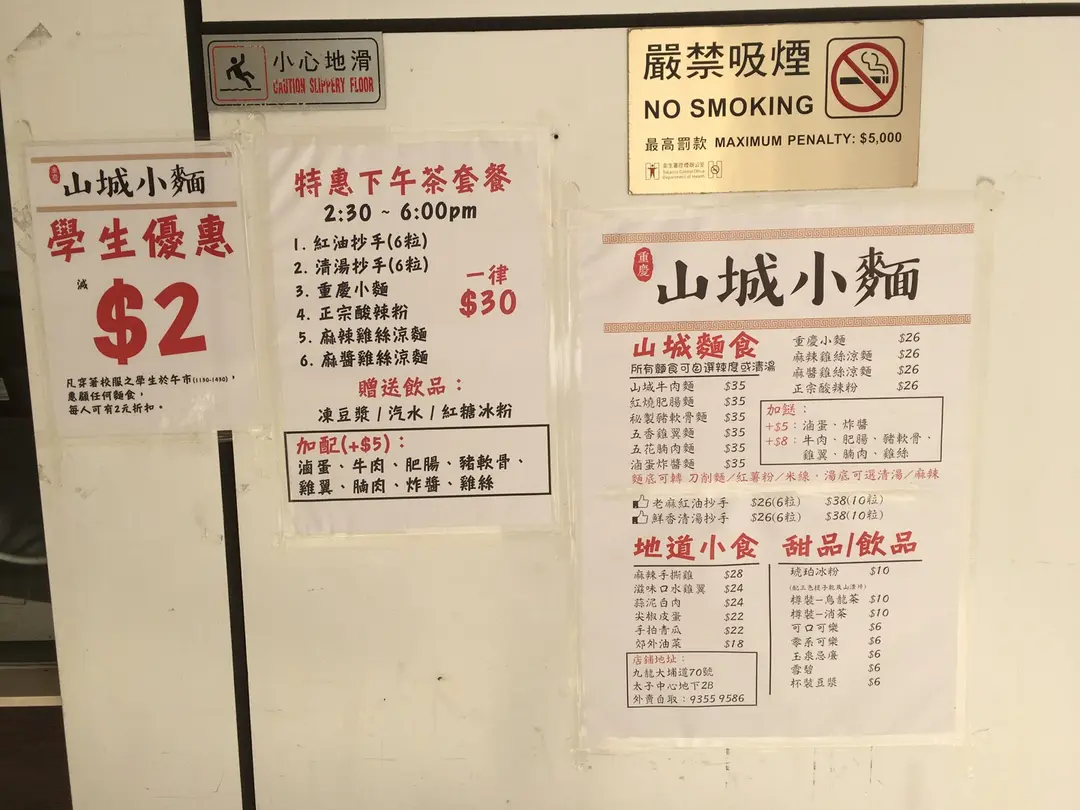 小心地滑
CAUTION SLIPPERY FLOOR
嚴禁吸煙
NO SMOKING
最高罰款 MAXIMUM PENALTY: $5,000
衞生署控煙酒辦公室
Department of Health
重慶
山城小麵
學生優惠
減
$2
凡穿著校服之學生於午市(1130-1430),
惠顧任何麵食,
每人可有2元折扣。
特惠下午茶套餐
2:30 ~ 6:00pm
1. 紅油抄手(6粒)
2. 清湯抄手(6粒)
3. 重慶小麵
4. 正宗酸辣粉
5. 麻辣雞絲涼麵
6. 麻醬雞絲涼麵
一律
$30
贈送飲品:
凍豆漿 / 汽水 / 紅糖冰粉
加配(+$5):
滷蛋、牛肉、肥腸、豬軟骨、
雞翼、腩肉、炸醬、雞絲
重慶
山城小麵
山城麵食
所有麵食可自選辣度或清湯
山城牛肉麵 $35
紅燒肥腸麵 $35
秘製豬軟骨麵 $35
五香雞翼麵 $35
五花腩肉麵 $35
滷蛋炸醬麵 $35
重慶小麵 $26
麻辣雞絲涼麵 $26
麻醬雞絲涼麵 $26
正宗酸辣粉 $26
加餸:
+$5: 滷蛋、炸醬
+$8: 牛肉、肥腸、豬軟骨、
雞翼、腩肉、雞絲
麵底可轉 刀削麵/紅薯粉/米線。湯底可選清湯/麻辣
老麻紅油抄手 $26(6粒) $38(10粒)
鮮香清湯抄手 $26(6粒) $38(10粒)
地道小食
麻辣手撕雞 $28
滋味口水雞翼 $24
蒜泥白肉 $24
尖椒皮蛋 $22
手拍青瓜 $22
郊外油菜 $18
店鋪地址:
九龍大埔道70號
太子中心地下2B
外賣自取:9355 9586
甜品/飲品
琥珀冰粉 $10
樽裝-烏龍茶 $10
樽裝-涓茶 $10
可口可樂 $6
零系可樂 $6
玉泉忌廉 $6
雪碧 $6
杯裝豆漿 $6